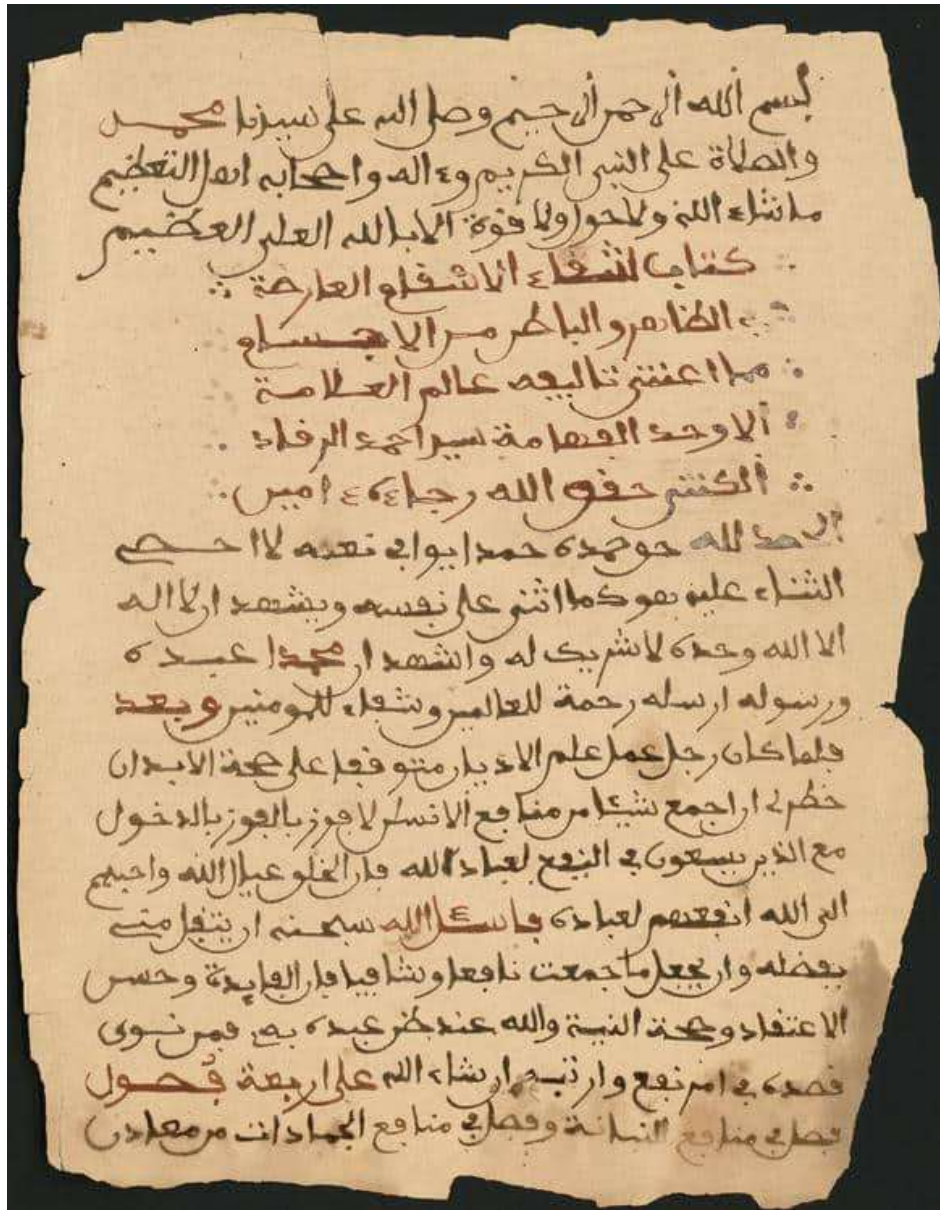 بسم الله الرحمن الرحيم وصل الله على سيدنا محمد
والصلاة على النبي الكريم وء اله واصحابه اهل التعظيم
ما شاء الله ولا حول ولا قوة الا بالله العلي العظيم
كتاب شفاء الاسقام العارضة
الظاهر والباطن من الاجسام
مما اعتنى تاليفه عالم العلامة
الاوحد الفهامة سيد احمد الرقاد
الكنتي حقق الله رجاءه ءامين
الحمد لله حق حمده حمدا يوافي نعمه لا احصي
الثناء عليه هو كما اثنى على نفسه ويشهد ان لا اله
الا الله وحده لا شريك له واشهد ان محمدا عبده
ورسوله ارسله رحمة للعالمين وشفاء للمومنين وبعد
فلما كان رجل عمل علم الاديان متوقفا على صحة الابدان
خطر لي ان اجمع شيئا من منافع الانسان لافوز بالفوز بالدخول
مع الذين يسعون في النفع لعباد الله فان الخلق عيال الله واحبهم
الى الله انفعهم لعباده فاسئل الله سبحنه ان يتقبل مني
بفضله وان يجعل ما جمعت نافعا وشافيا فان الفايدة وحسن
الاعتقاد وصحة النية والله عند ظن عبده به فمن نوى
قصده في امر نفع وارتبه ان شاء الله على اربعة فصول
فصل في منافع النباتة وفصل في منافع الجمادات من معادن